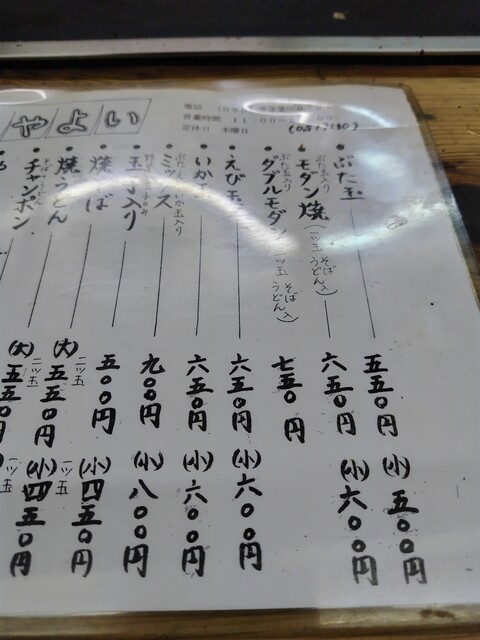 いよや
電話
営業時間 11:00
定休日 木曜日
ぶた玉 五五〇円 (小)五〇〇円
ぶた玉入り
モダン焼(一ツ玉 そば うどん 入) 六五〇円 (小)六〇〇円
ぶた玉入り
ダブルモダン 二ツ玉 そば うどん 入) 七五〇円
えび玉 六五〇円 (小)六〇〇円
いか玉 六五〇円 (小)六〇〇円
ミックス 九〇〇円 (小)八〇〇円
玉子入り 五〇〇円
焼そば 二ツ玉 (大)五五〇円 一ツ玉 (小)四五〇円
焼うどん 二ツ玉 (大)五五〇円 一ツ玉 (小)四五〇円
チャンポン